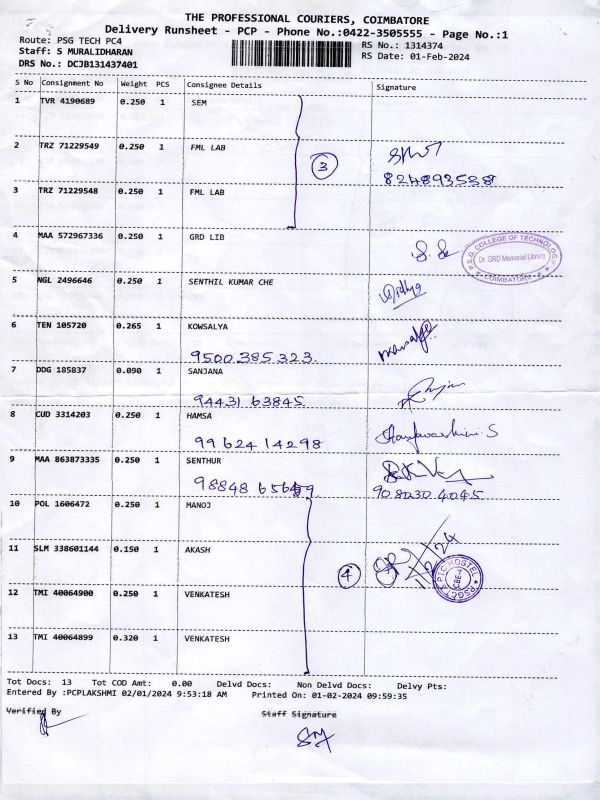 THE PROFESSIONAL COURIERS, COIMBATORE
Delivery Runsheet - PCP - Phone No.:0422-3505555 - Page No.:1
Route: PSG TECH PC4
RS No.: 1314374
Staff: S MURALIDHARAN
RS Date: 01-Feb-2024
DRS No.: DCJB131437401
S No Consignment No Weight PCS Consignee Details Signature
1 TVR 4190689 0.250 1 SEM
2 TRZ 71229549 0.250 1 FML LAB
3
3 TRZ 71229548 0.250 1 FML LAB
4 MAA 572967336 0.250 1 GRD LIB
P.S.G. COLLEGE OF TECHNOLOGY
Dr. GRD Memorial Library
COIMBATORE
5 NGL 2496646 0.250 1 SENTHIL KUMAR CHE
Vidhya
6 TEN 105720 0.265 1 KOWSALYA
9500385323
7 DDG 185837 0.090 1 SANJANA
94431 63845
8 CUD 3314203 0.250 1 HAMSA
99624 14298
9 MAA 863873335 0.250 1 SENTHUR
9080304045
10 POL 1606472 0.250 1 MANOJ
11 SLM 338601144 0.150 1 AKASH
4
1/2/24
PSGCT & PTC HOSTEL
CBE-4
12 TMI 40064900 0.250 1 VENKATESH
13 TMI 40064899 0.320 1 VENKATESH
Tot Docs: 13 Tot COD Amt: 0.00 Delvd Docs: Non Delvd Docs: Delvy Pts:
Entered By :PCPLAKSHMI 02/01/2024 9:53:18 AM Printed On: 01-02-2024 09:59:35
Verified By Staff Signature